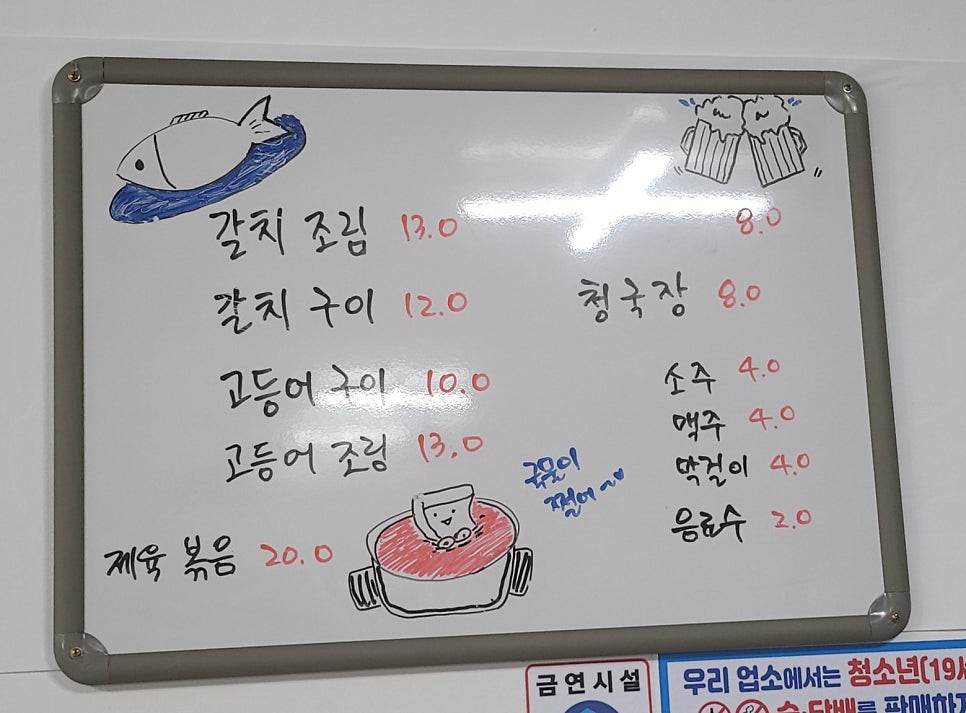 갈치 조림 13.0
갈치 구이 12.0
고등어 구이 10.0
고등어 조림 13.0
제육 볶음 20.0
8.0
청국장 8.0
소주 4.0
맥주 4.0
막걸이 4.0
음료수 2.0
국물이
쩔어~
금연시설
우리 업소에서는 청소년(19세
술·담배를 판매하지